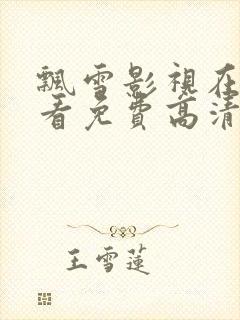 飄雪影視在
看免費高清
王雪蓮